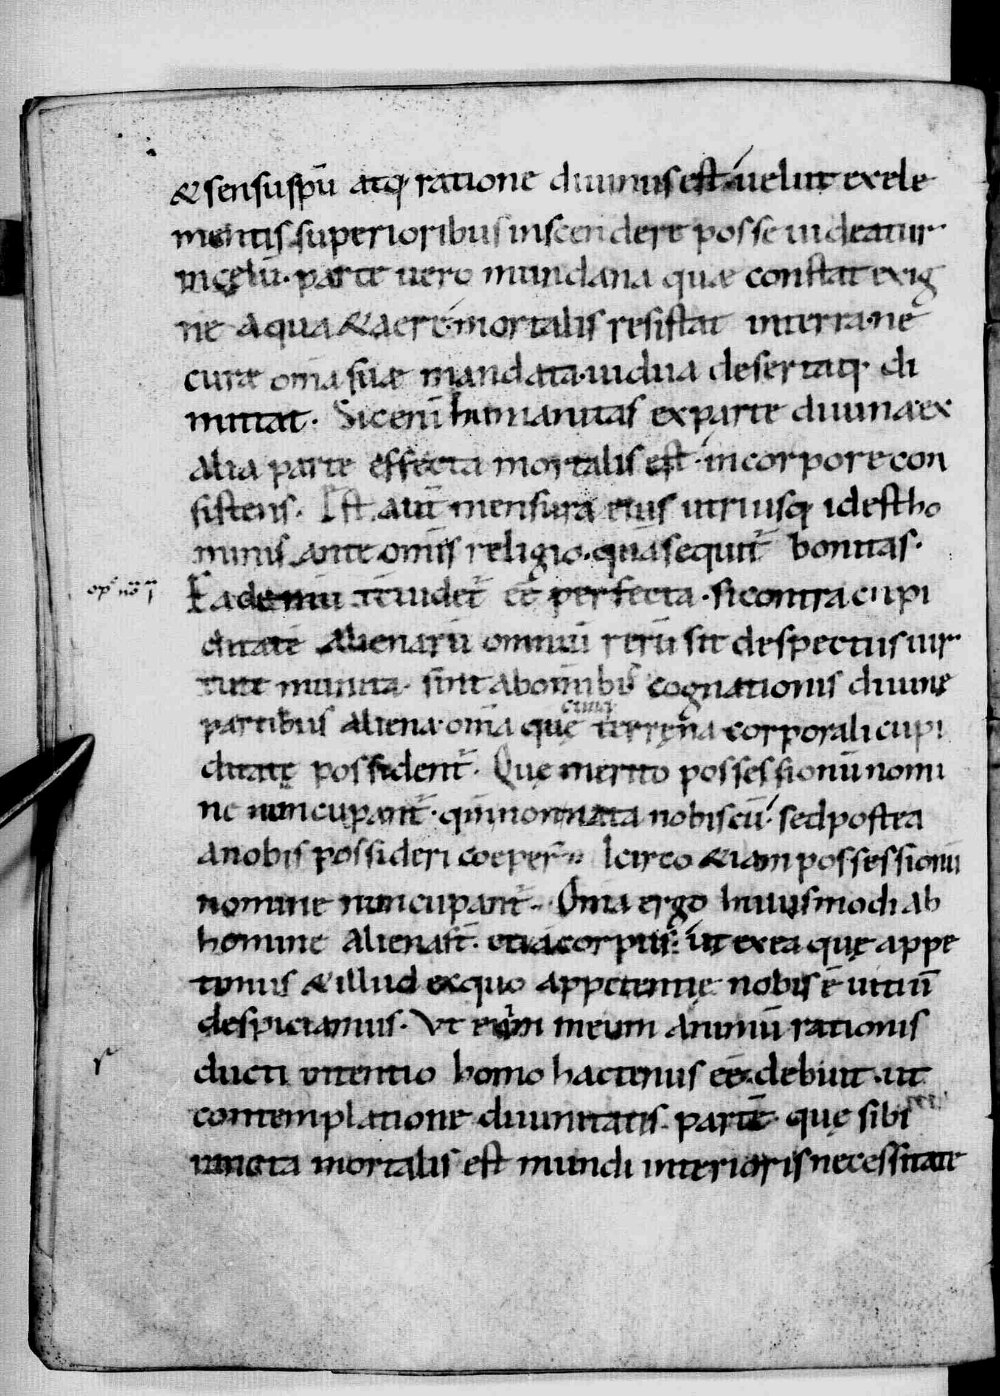 & sensu spū atq; ratione diuinus est· uelut exele
mentis superioribus inscendere posse uideatur
in cęlū· parte uero mundana quæ constat ex ig
ne aqua & aere· mortalis resistat in terra· ne
curæ om̄a suæ mandata· uidua desertaq; di
mittat· Sic enī humanitas ex parte diuina· ex
alia parte effecta mortalis est· in corpore con
sistens· Est aut̄ mensura eius utriusq; id est ho
minis ante om̄is religio· qua sequit̄ bonitas·
Ea demū uidet̄ eē perfecta· si contra cupi
ditatē alienarū omniū rerū sit despectus uir
tute munita· sunt ab omnibus cognationis diuinę
partibus aliena· om̄a quę cūnq; terręna corporali cupi
ditatę possident̄· Quę merito possessionū nomi
ne nuncupant̄· qm̄ non nata nobiscū· sed postea
a nobis possideri coeper̄· Icirco & iam possessionū
nomine nuncupant̄· Om̄ia ergo huiusmodi ab
homine aliena st̄· etiā corpus· ut ex ea quę appe
timus & illud ex quo appetentię nobis ē uitiū
despiciamus· Vt enim meum animū rationis
ducit intentio homo hactenus eē debuit· ut
contemplatione diuinitatis· partē quę sibi
iuncta mortalis est mundi interioris necessitate